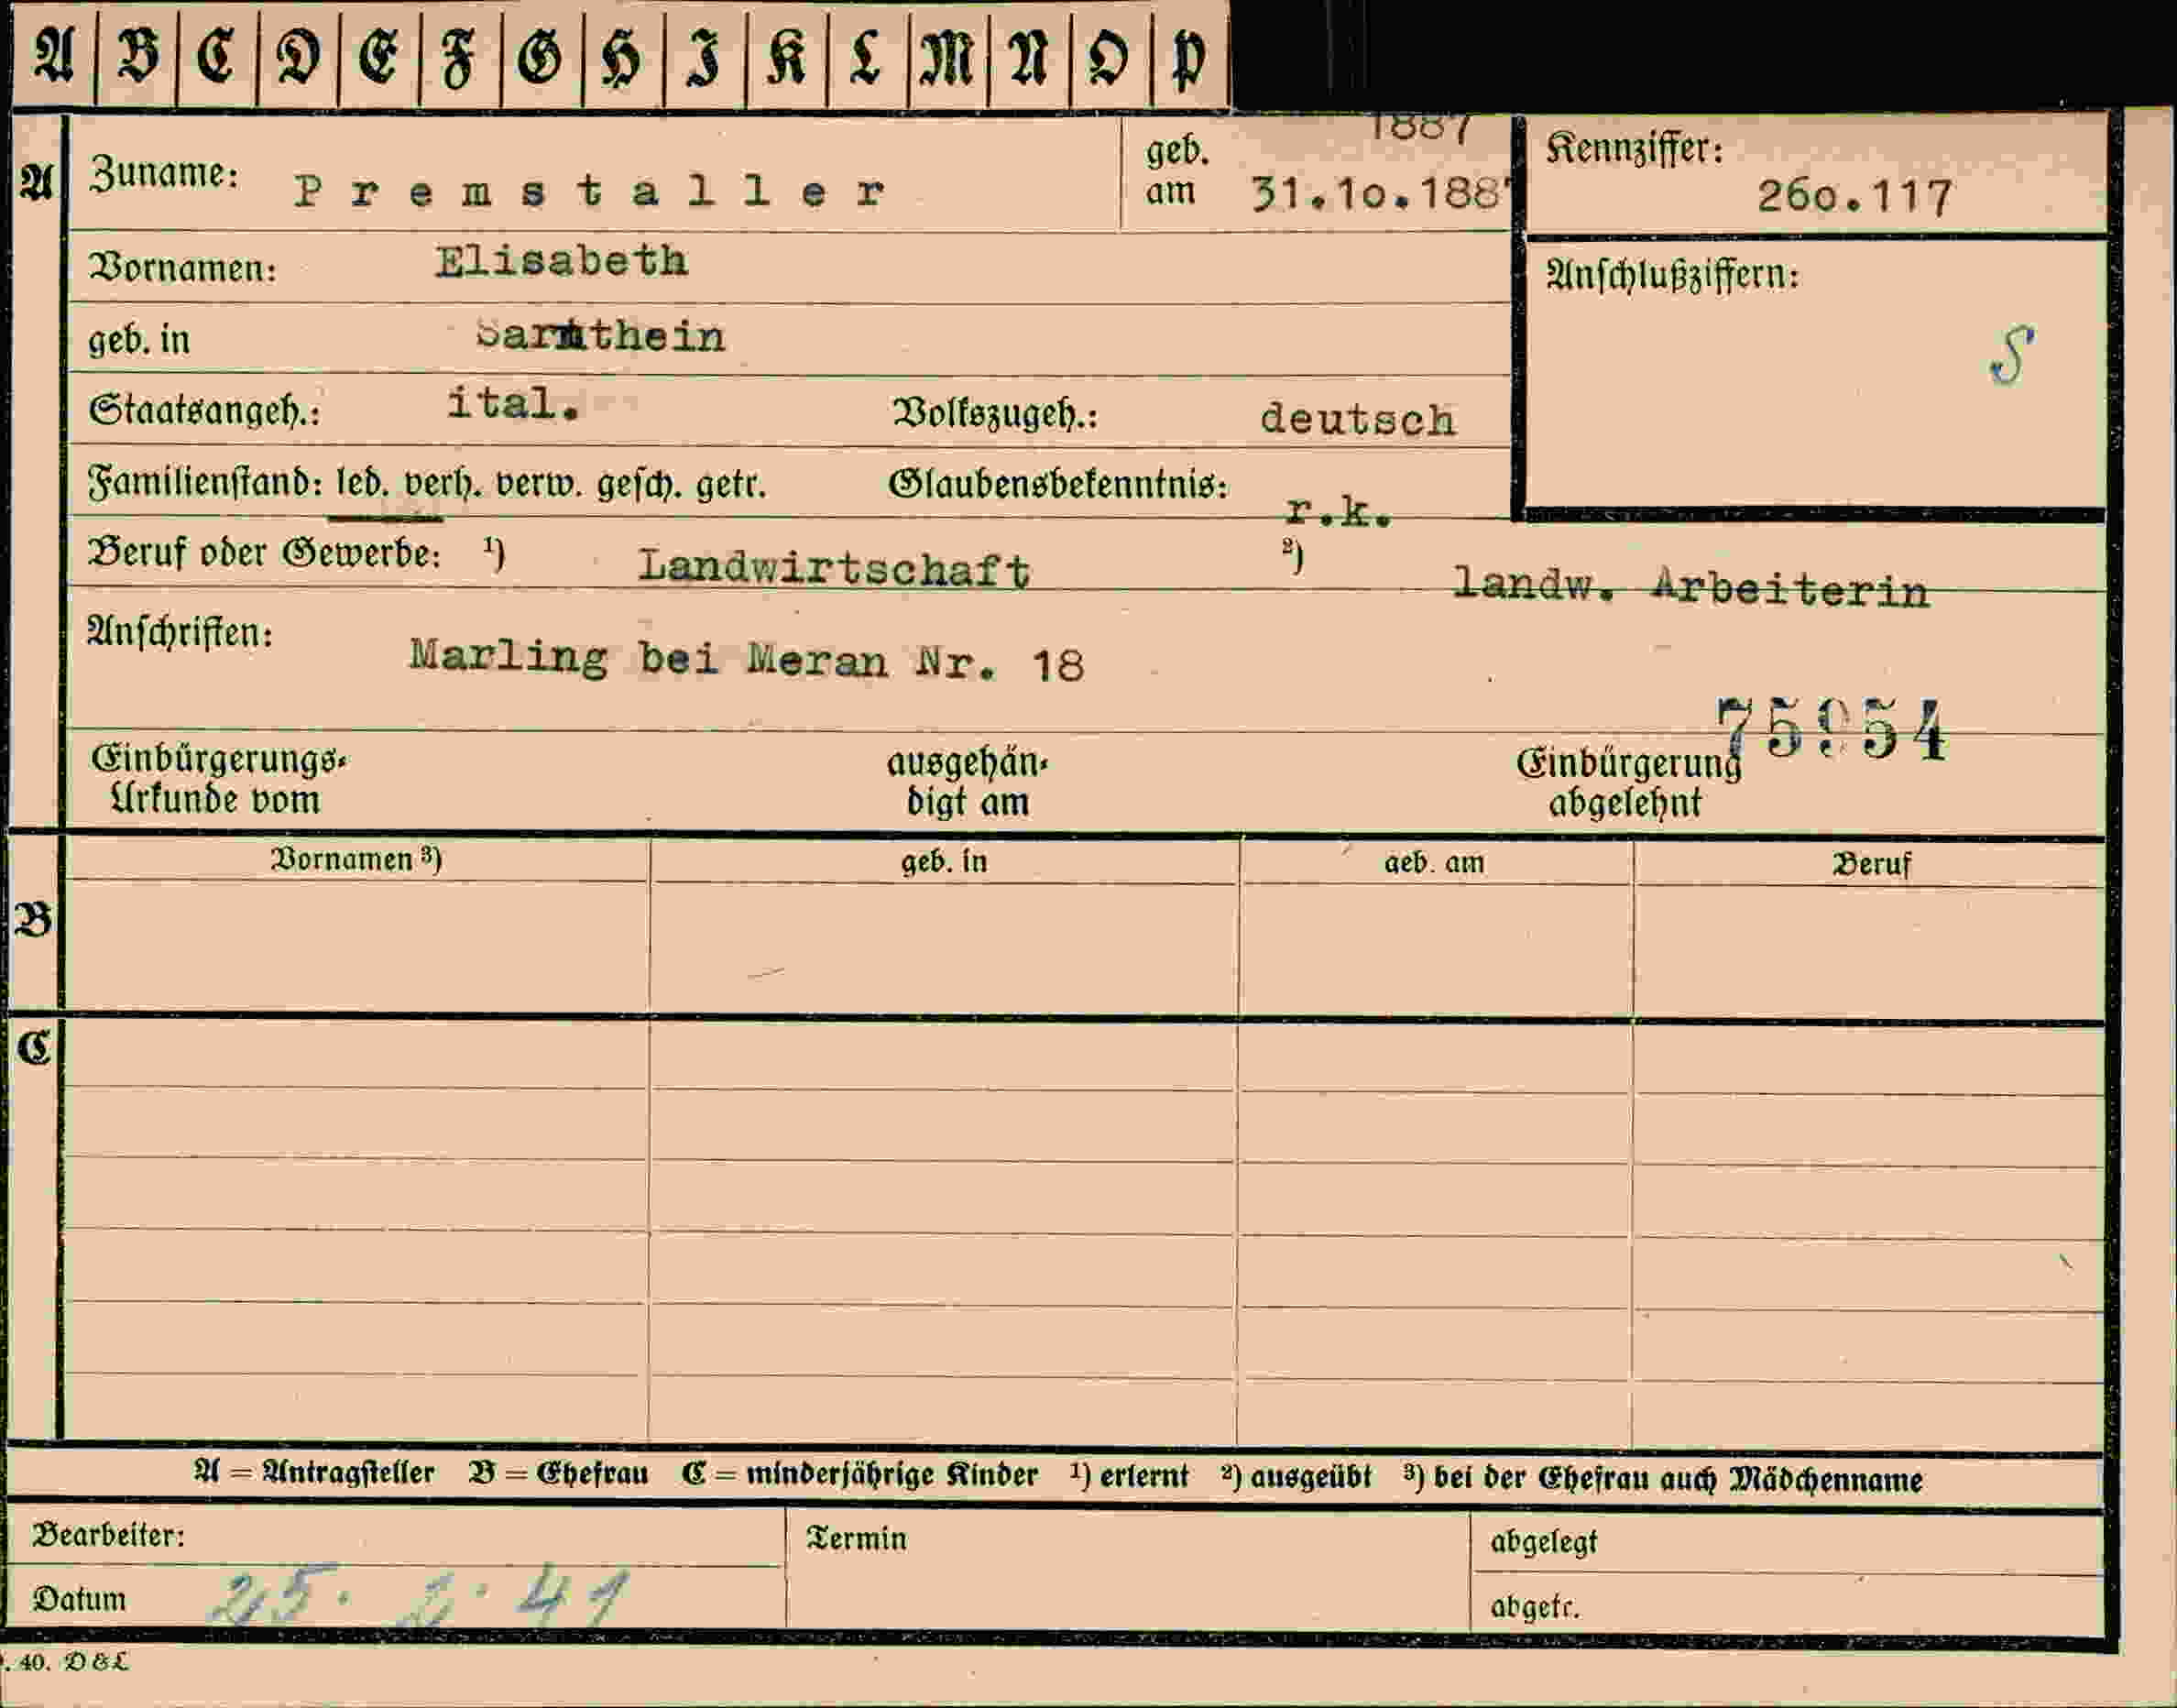 A B C D E F G H I K L M N O P
1887
A Zuname: Premstaller geb. am 31.10.1887 Kennziffer: 260.117
Vornamen: Elisabeth Anschlußziffern:
S
geb. in Sarnthein
Staatsangeh.: ital. Volkszugeh.: deutsch
Familienstand: led. verh. verw. gesch. getr. Glaubensbekenntnis: r.k.
Beruf oder Gewerbe: ¹) Landwirtschaft ²) landw. Arbeiterin
Anschriften: Marling bei Meran Nr. 18
Einbürgerungs-Urkunde vom ausgehän-digt am Einbürgerung abgelehnt
B Vornamen ³) geb. in geb. am Beruf
C
A = Antragsteller B = Ehefrau C = minderjährige Kinder ¹) erlernt ²) ausgeübt ³) bei der Ehefrau auch Mädchenname
Bearbeiter: Termin abgelegt
Datum 25. 2. 41 abgetr.
. 40. D & L